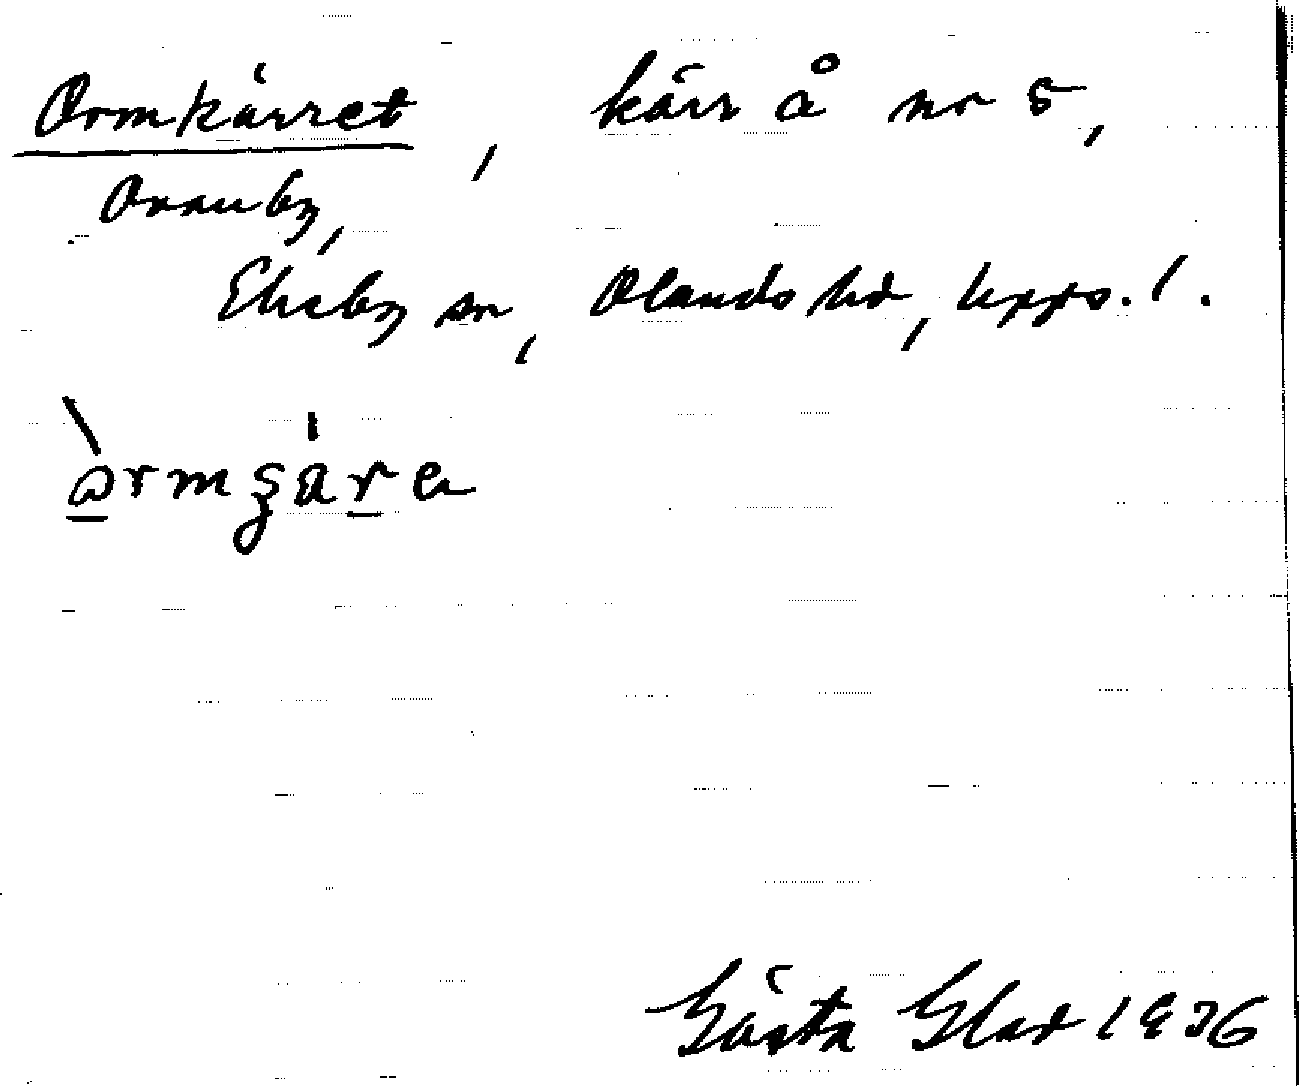 Ormkärret, kärr å nr 5,
Ovanby,
Ekeby sn, Olands hd, Upps. l.
Gösta Glad 1936